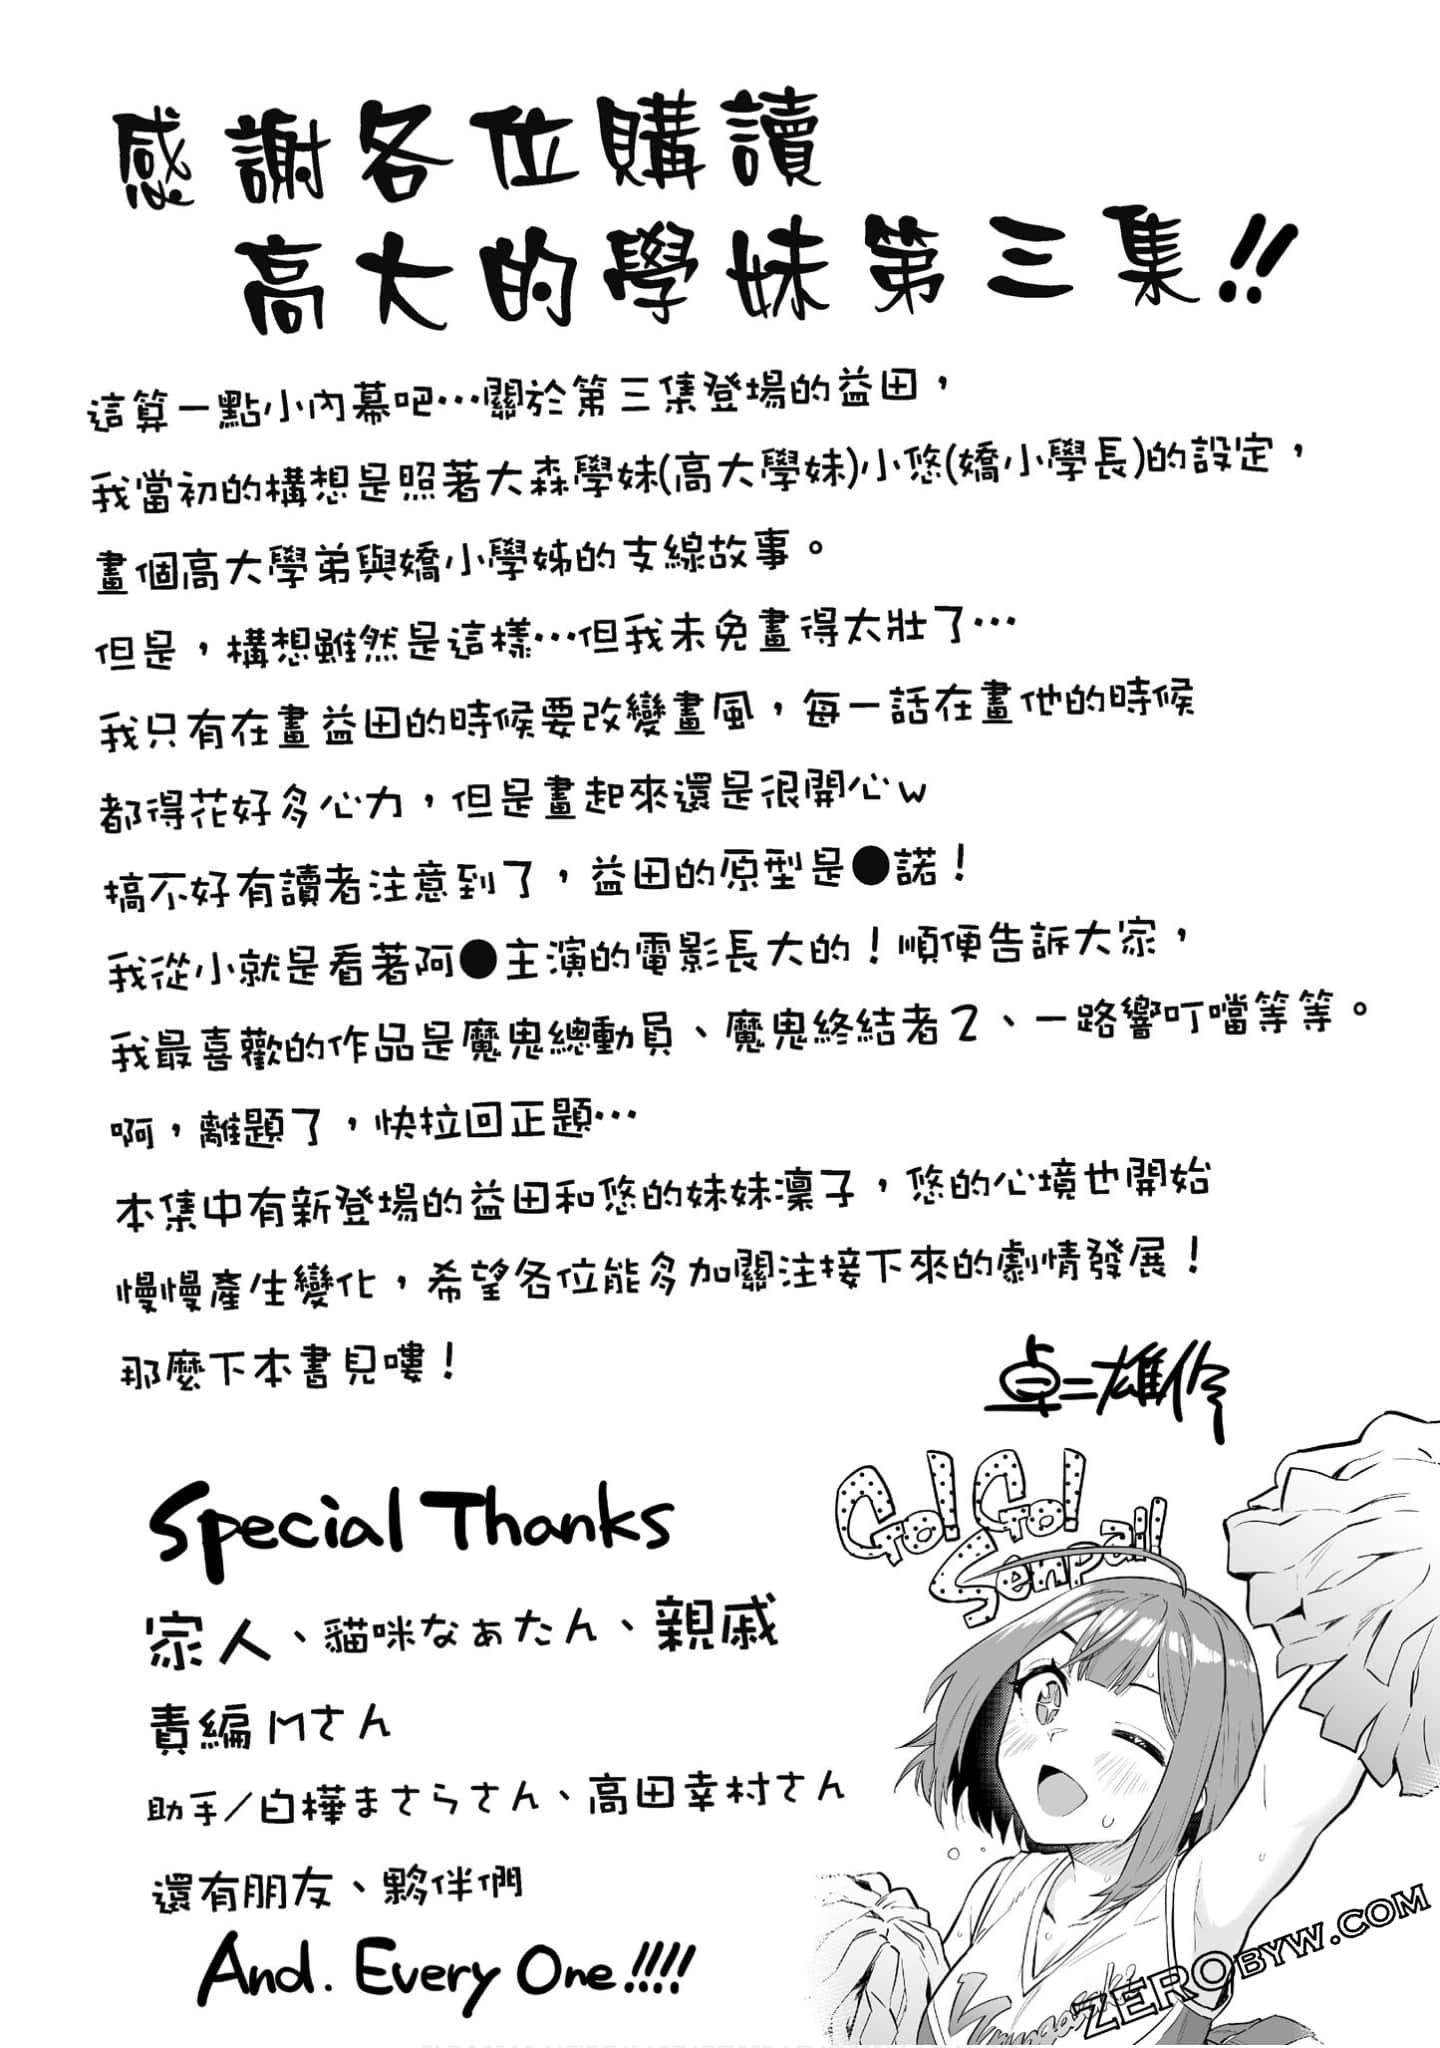 感謝各位購讀
高大的學妹第三集!!
這算一點小內幕吧…關於第三集登場的益田，
我當初的構想是照著大森學妹(高大學妹)小悠(嬌小學長)的設定，
畫個高大學弟與嬌小學姊的支線故事。
但是，構想雖然是這樣…但我未免畫得太壯了…
我只有在畫益田的時候要改變畫風，每一話在畫他的時候
都得花好多心力，但是畫起來還是很開心w
搞不好有讀者注意到了，益田的原型是●諾！
我從小就是看著阿●主演的電影長大的！順便告訴大家，
我最喜歡的作品是魔鬼總動員、魔鬼終結者2、一路響叮噹等等。
啊，離題了，快拉回正題…
本集中有新登場的益田和悠的妹妹凜子，悠的心境也開始
慢慢產生變化，希望各位能多加關注接下來的劇情發展！
那麼下本書見嘍！
卓二雄伶
Go! Go!
Senpai!!
Special Thanks
家人、貓咪なぁたん、親戚
責編Mさん
助手/白樺まさらさん、高田幸村さん
還有朋友、夥伴們
And. Every One!!!!
ZEROBYW.COM